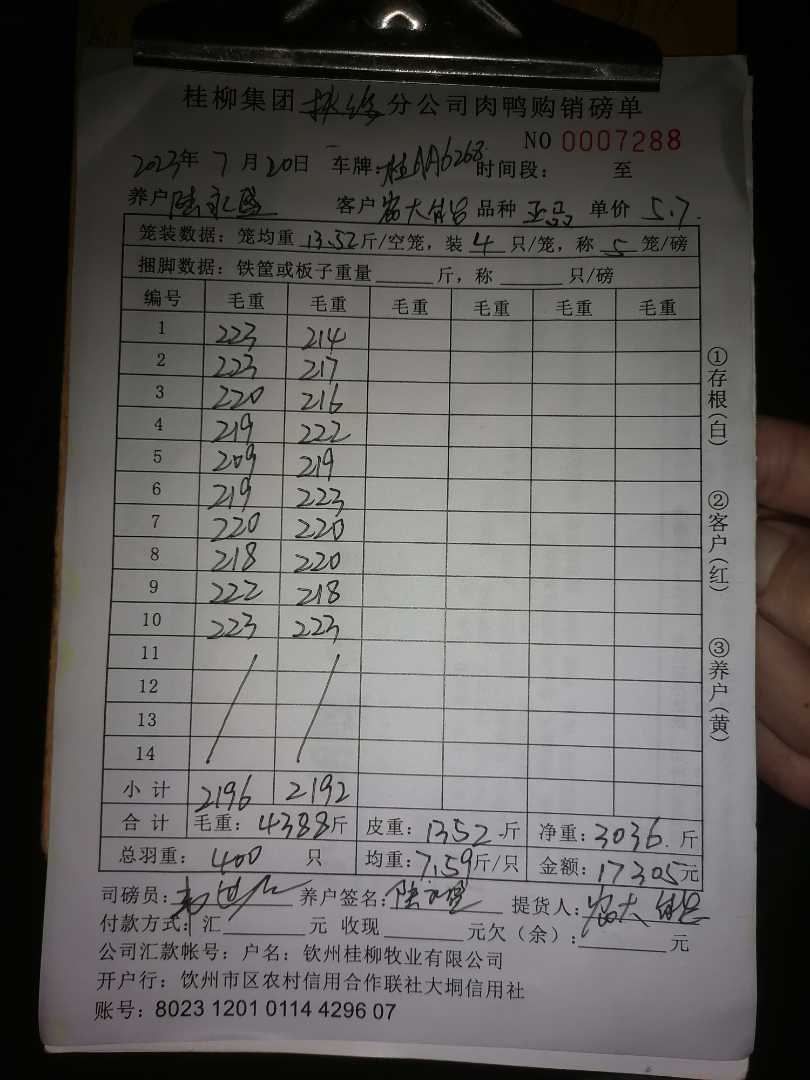 桂柳集团 分公司肉鸭购销磅单
NO 0007288
2023年 7月20日 车牌:桂AA6268 时间段: 至
养户 陆 客户 农大 品种 单价 5.7.
笼装数据: 笼均重 13.52 斤/空笼,装 4 只/笼,称 5 笼/磅
捆脚数据: 铁筐或板子重量 斤,称 只/磅
编号 毛重 毛重 毛重 毛重 毛重 毛重
1 223 214
2 223 217
3 220 216
4 219 222
5 209 219
6 219 223
7 220 220
8 218 220
9 222 218
10 223 223
11
12
13
14
小计 2196 2192
合计 毛重: 4388斤 皮重: 1352斤 净重: 3036.斤
总羽重: 400 只 均重: 7.59斤/只 金额: 17305元
司磅员: 养户签名: 陆 提货人: 农大
付款方式: 汇 元 收现 元欠(余): 元
公司汇款帐号: 户名: 钦州桂柳牧业有限公司
开户行: 钦州市区农村信用合作联社大垌信用社
账号: 8023 1201 0114 4296 07
①存根(白) ②客户(红) ③养户(黄)